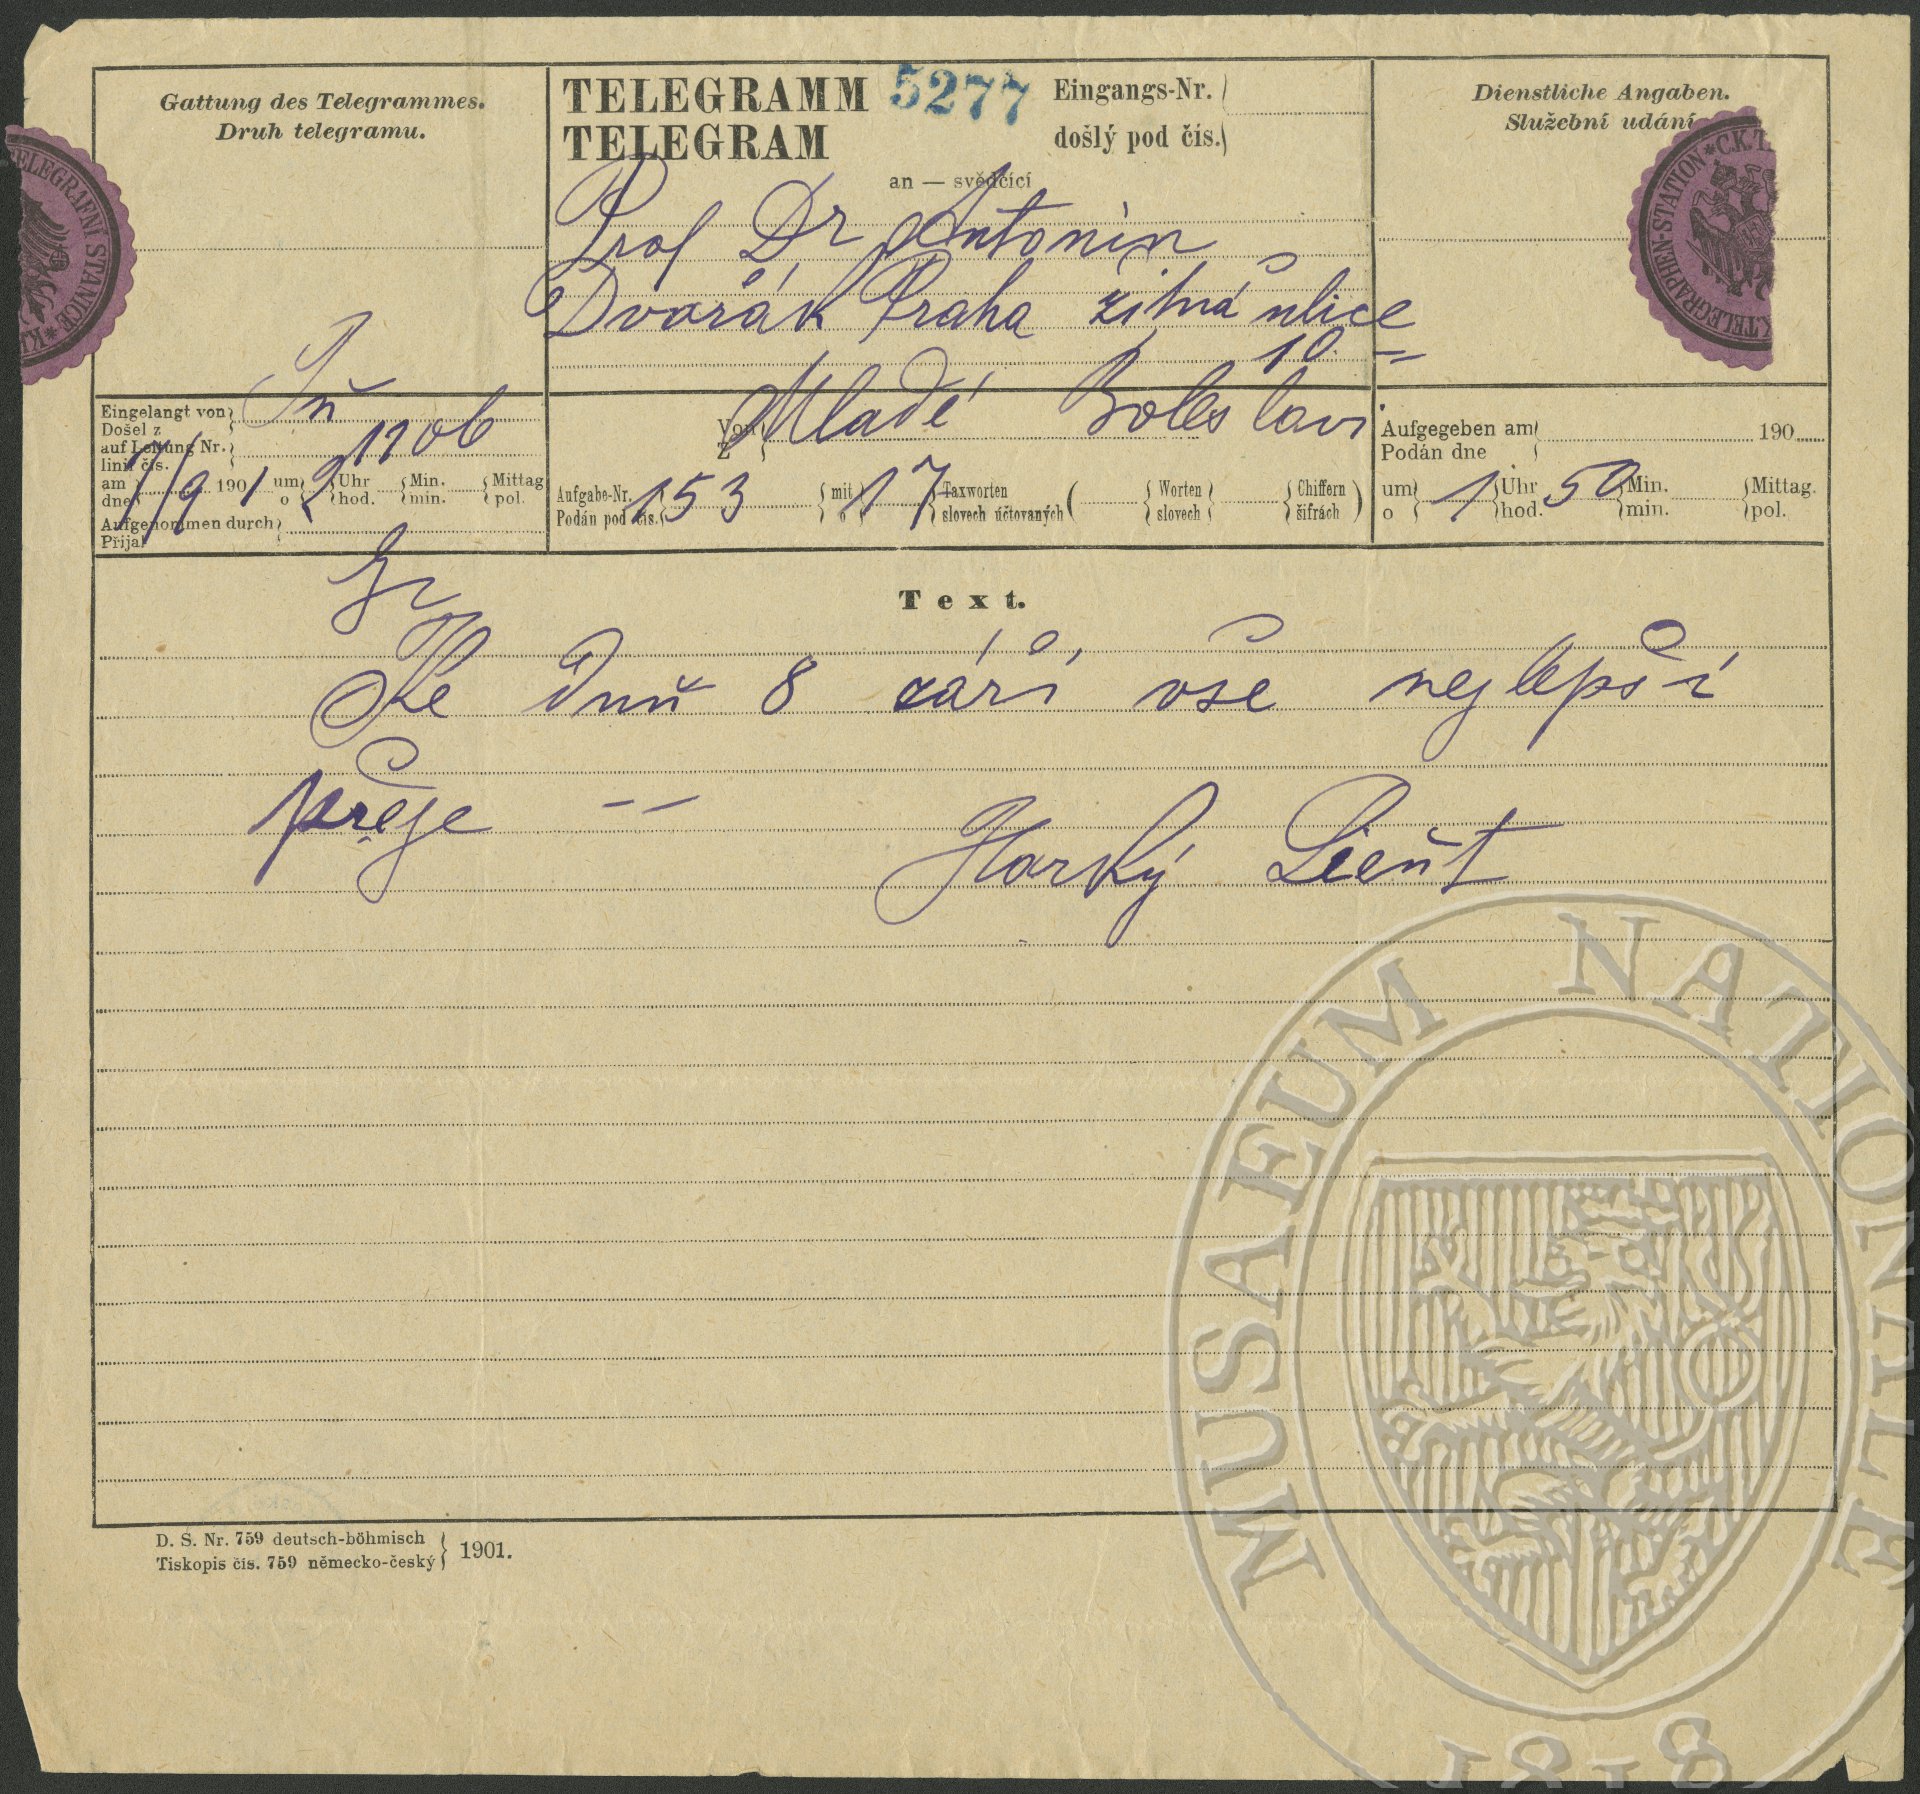 Gattung des Telegrammes.
Druh telegramu.
TELEGRAMM 5277 Eingangs-Nr.
TELEGRAM došlý pod čís.
an — svědčící
Dienstliche Angaben.
Služební udání
TELEGRAFNÍ STANICE
TELEGRAPHEN-STATION * C.K.T.
Prof Dr Antonin
Dvořák Praha žitná ulice
10. =
Eingelangt von
Došel z
auf Leitung Nr.
linií čís.
am 7/9 1901 um 2 Uhr Min. Mittag
dne o hod. min. pol.
Aufgenommen durch
Přijal
Von Mladé Boleslavi
Z
Aufgabe-Nr. 153 mit 17 Taxworten ( Worten Chiffern )
Podán pod čís. o slovech účtovaných slovech šifrách
Aufgegeben am 190
Podán dne
um 1 Uhr 50 Min. Mittag.
o hod. min. pol.
Text.
Ke dnu 8 září vše nejlepší
přeje --
Horský Lieut
D. S. Nr. 759 deutsch-böhmisch
Tiskopis čís. 759 německo-český 1901.
MUSAEUM NATIONALE
1818